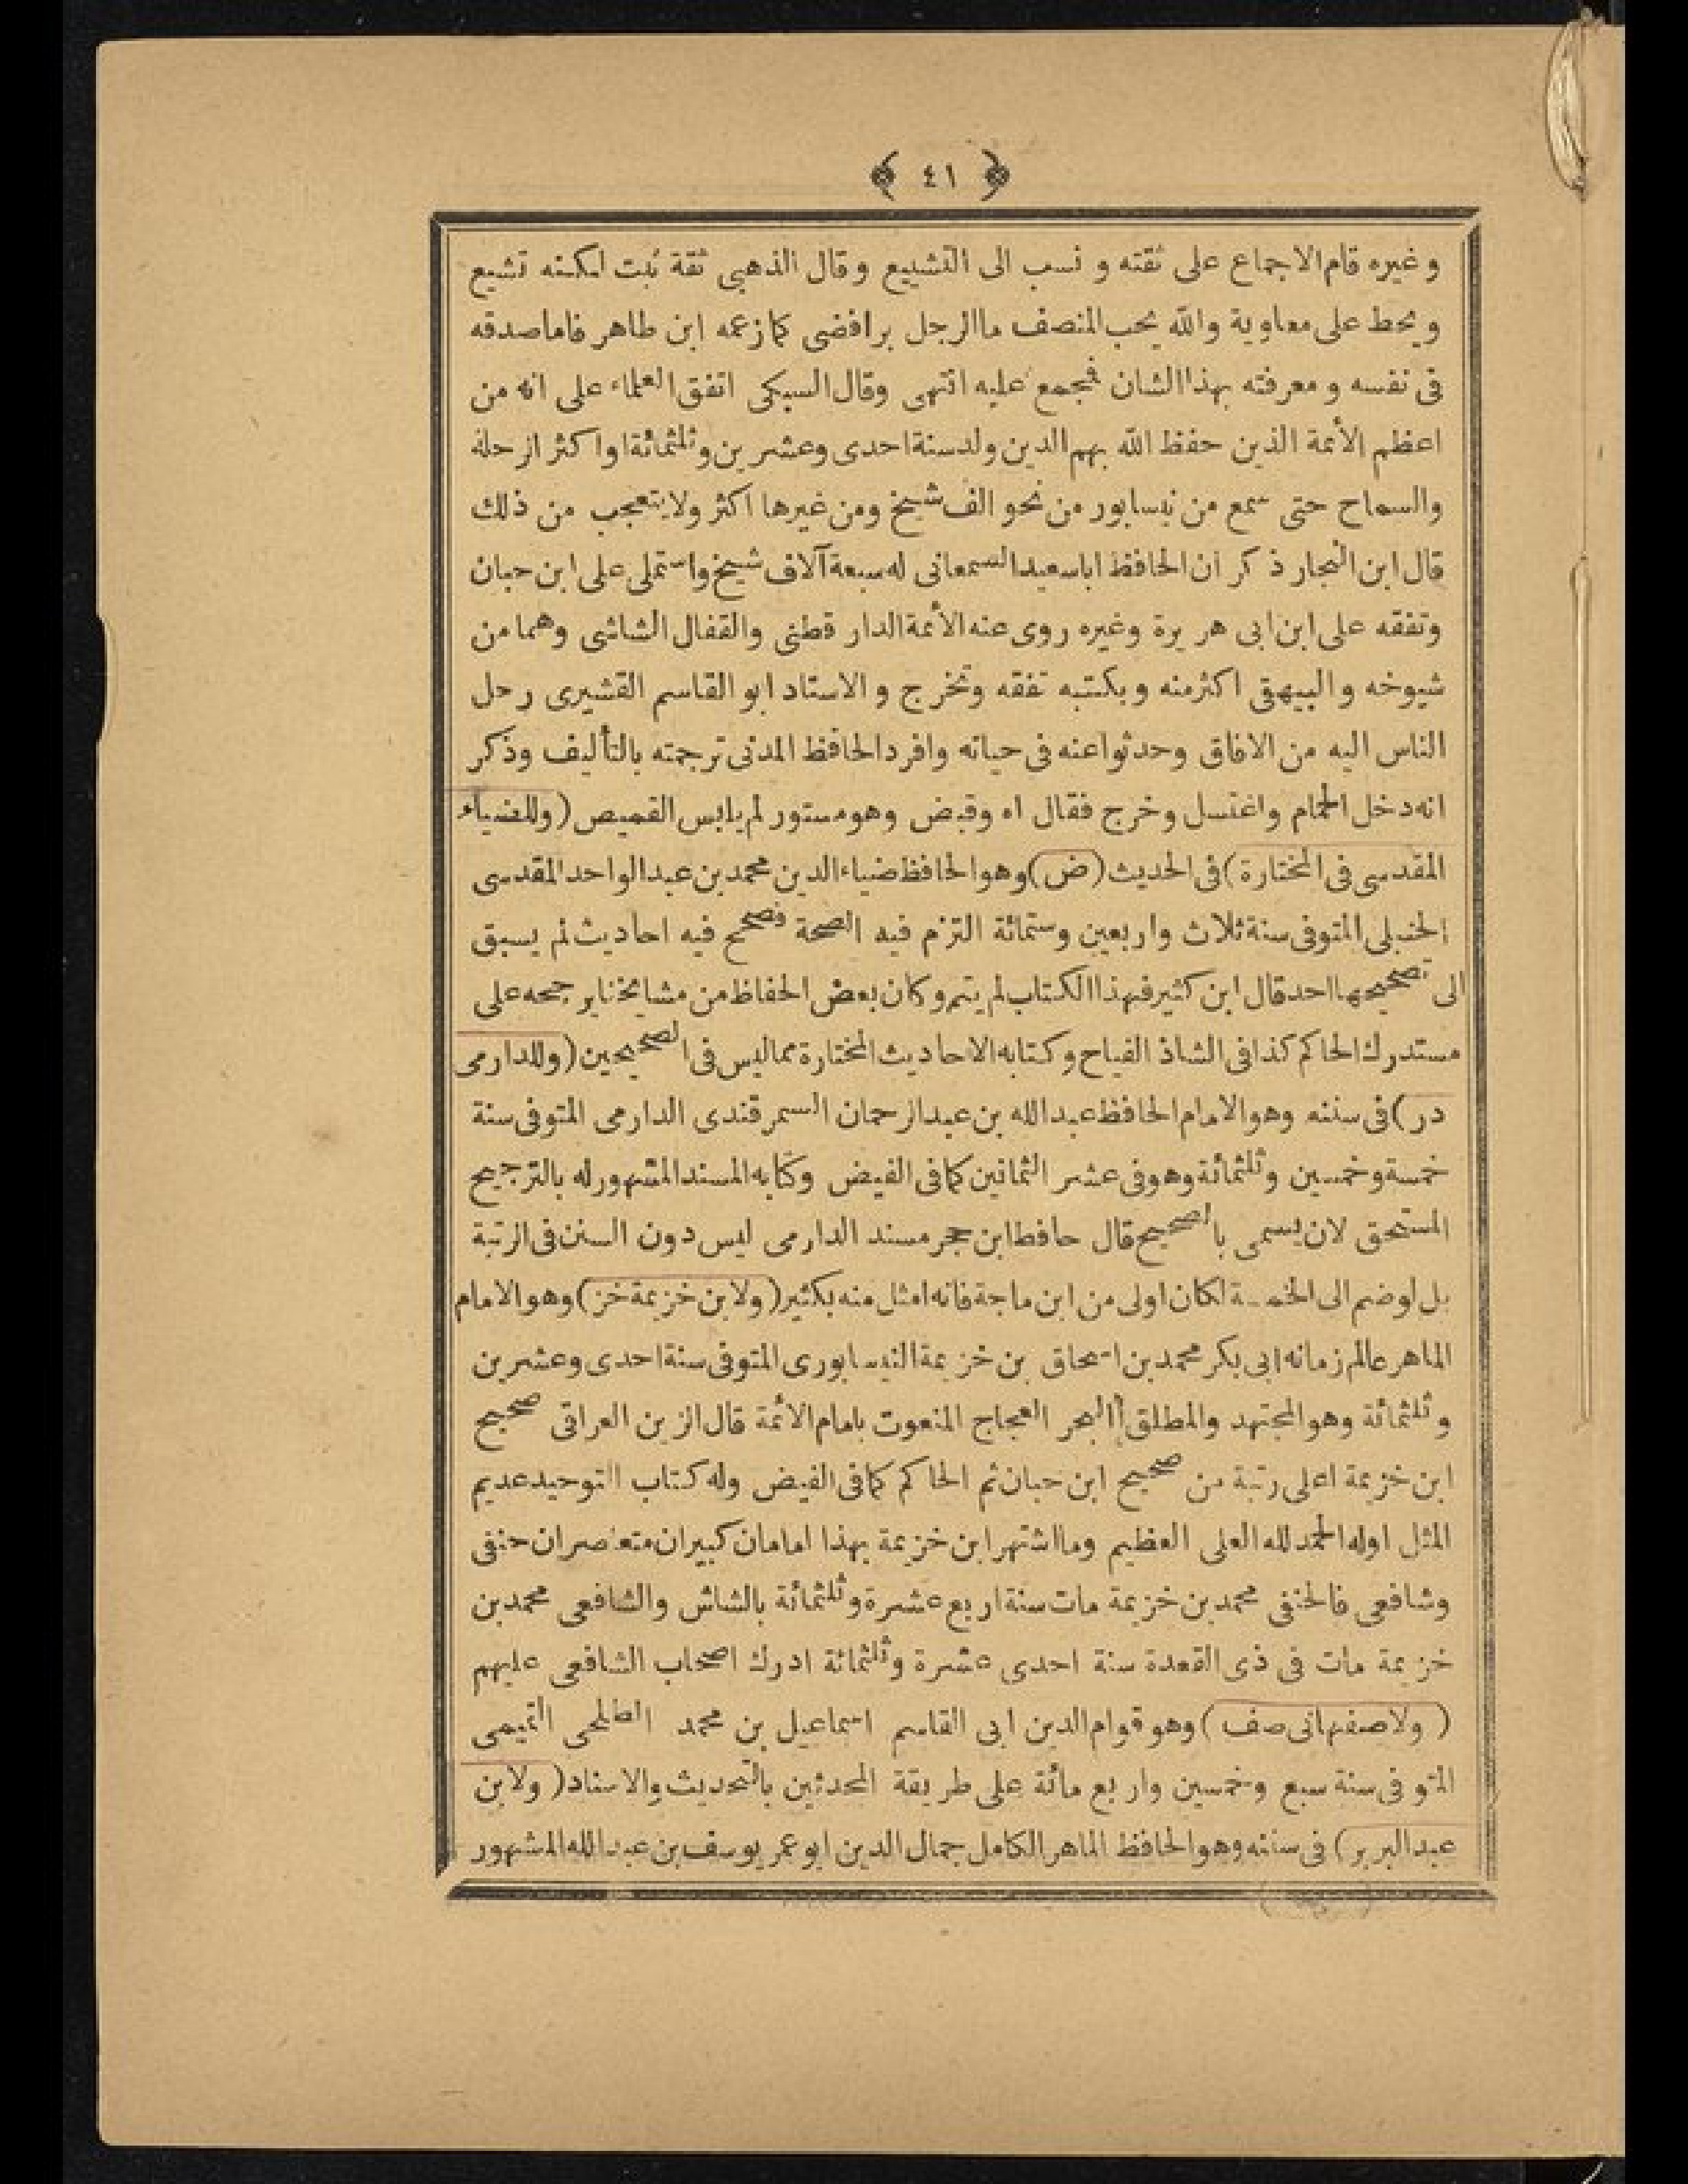 ٤١
و غيره قام الاجماع على ثقته و نسب الى التشييع و قال الذهبى ثقة ثبت لكنه تشيع
و يحط على معاوية والله يحب المنصف ما الرجل برافضى كما زعمه ابن طاهر فاما صدقه
فى نفسه و معرفته بهذا الشان فمجمع عليه انتهى وقال السبكى اتفق العلماء على انه من
اعظم الأئمة الذين حفظ الله بهم الدين ولد سنة احدى وعشرين وثلثمائة او اكثر از حلة
والسماح حتى سمع من نيسابور من نحو الف شيخ ومن غيرها اكثر ولا يتعجب من ذلك
قال ابن النجار ذكر ان الحافظ ابا سعيد السمعانى له سبعة آلاف شيخ واستملى على ابن حبان
وتفقه على ابن ابى هريرة وغيره روى عنه الأئمة الدار قطنى والقفال الشاشى وهما من
شيوخه و البيهقى اكثر منه و بكتبه تفقه وتخرج و الاستاد ابو القاسم القشيرى رحل
الناس اليه من الافاق وحدثوا عنه فى حياته وافرد الحافظ المدنى ترجمته بالتأليف وذكر
انه دخل الحمام واغتسل وخرج فقال اه وقبض وهو مستور لم يلبس القميص (وللضياء
المقدسى فى المختارة) فى الحديث (ض) وهو الحافظ ضياء الدين محمد بن عبد الواحد المقدسى
الحنبلى المتوفى سنة ثلاث واربعين وستمائة التزم فيه الصحة فصحح فيه احاديث لم يسبق
الى تصحيحها احد قال ابن كثير فهذا الكتاب لم يتم وكان بعض الحفاظ من مشايخنا يرجحه على
مستدرك الحاكم كذا فى الشاذ الفياح وكتابه الاحاديث المختارة مما ليس فى الصحيحين (وللدارمى
در) فى سننه وهو الامام الحافظ عبد الله بن عبد الرحمان السمرقندى الدارمى المتوفى سنة
خمسة وخمسين وثلثمائة وهو فى عشر الثمانين كما فى الفيض وكتابه المسند المشهور له بالترجيح
المستحق لان يسمى بالصحيح قال حافظ ابن حجر مسند الدارمى ليس دون السنن فى الرتبة
بل لو ضم الى الخمسة لكان اولى من ابن ماجة فانه امثل منه بكثير (ولابن خزيمة خز) وهو الامام
الماهر عالم زمانه ابى بكر محمد بن اسحاق بن خزيمة النيسابورى المتوفى سنة احدى وعشرين
وثلثمائة وهو المجتهد والمطلق البحر العجاج المنعوت بامام الائمة قال الزين العراقى صحيح
ابن خزيمة اعلى رتبة من صحيح ابن حبان ثم الحاكم كما فى الفيض وله كتاب التوحيد عديم
المثل اوله الحمد لله العلى العظيم وما اشتهر ابن خزيمة بهذا امامان كبيران متعاصران حنفى
وشافعى فالحنفى محمد بن خزيمة مات سنة اربع عشرة وثلثمائة بالشاش والشافعى محمد بن
خزيمة مات فى ذى القعدة سنة احدى عشرة وثلثمائة ادرك اصحاب الشافعى عليهم
( ولاصفهانى صف ) وهو قوام الدين ابى القاسم اسماعيل بن محمد الطلحى التيمى
المتوفى سنة سبع وخمسين واربع مائة على طريقة المحدثين بالتحديث والاسناد ( ولابن
عبد البر بر) فى سننه وهو الحافظ الماهر الكامل جمال الدين ابو عمر يوسف بن عبد الله المشهور